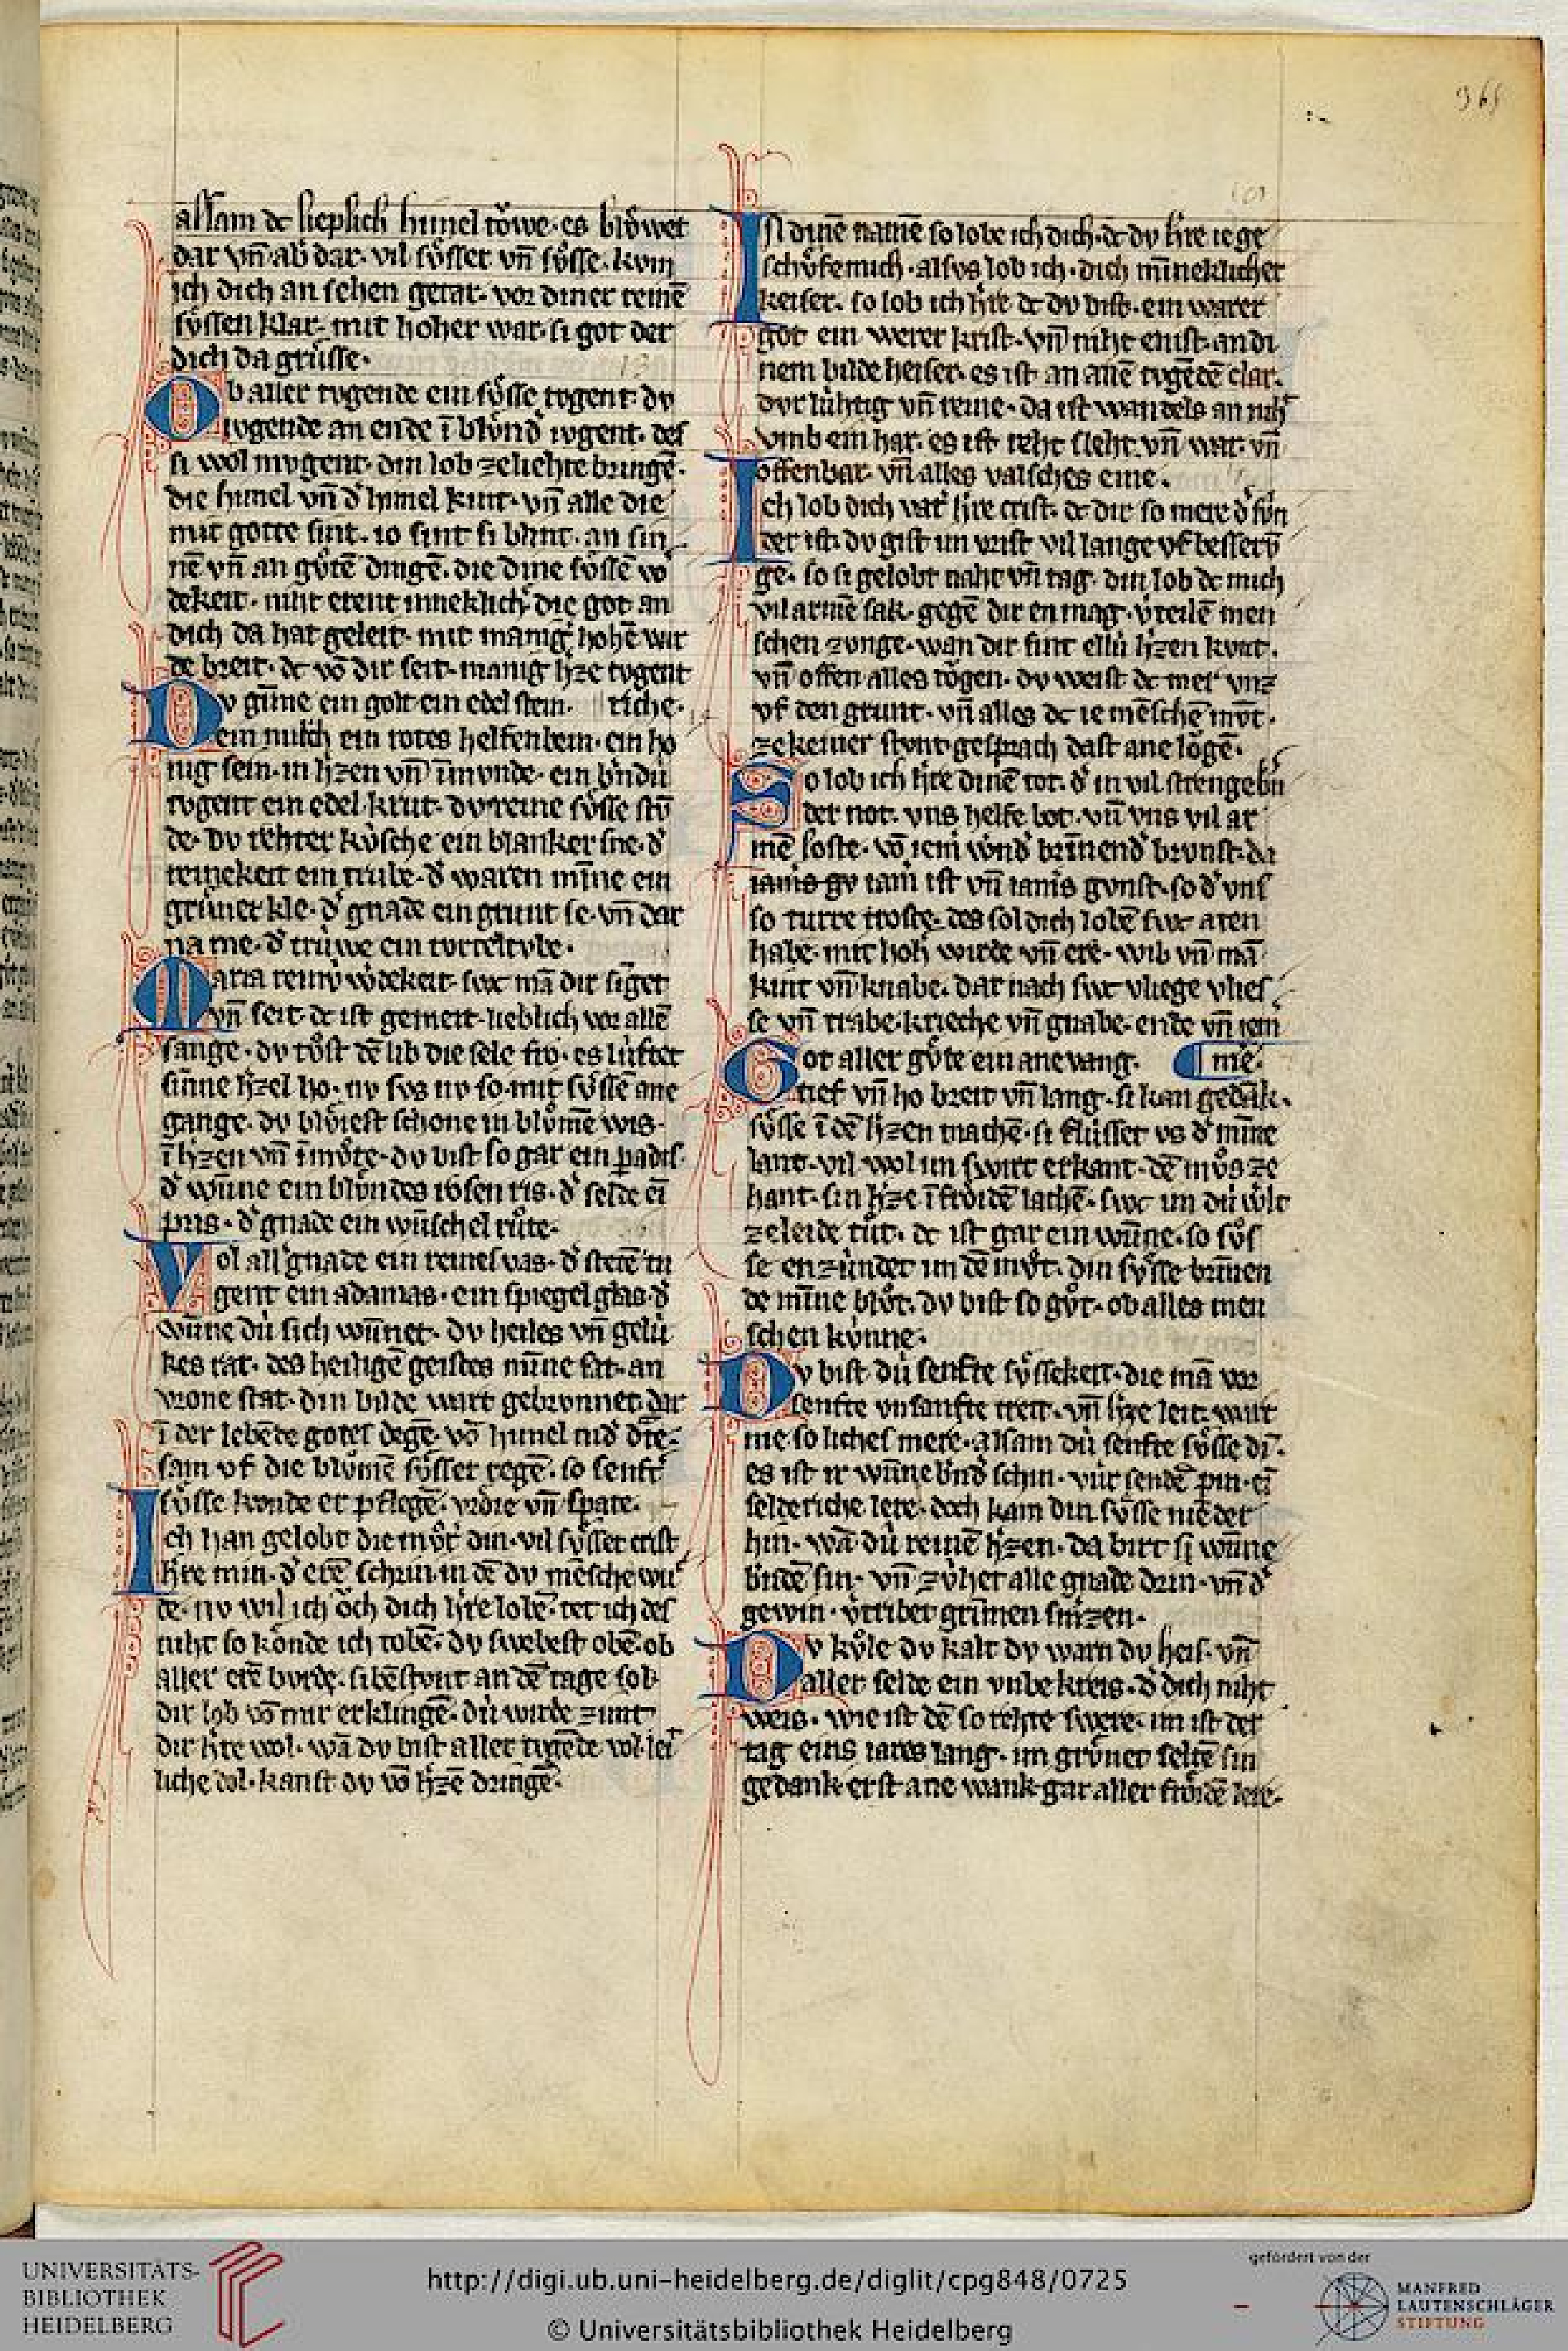 365
alsam dc lieplich himel tŏwe · es blŏwet
dar vn̄ ab dar · vil sv̊sser vn̄ sv̊sse · kvm
ich dich an sehen getar · vor diner reinē
sv̊ssen klar · mit hoher war · si got der
dich da grůsse ·
13
Ob aller tvgende ein sv̊sse tvgent · dv
ivgende an ende ī blv̊nd̓ ivgent · des
si wol mvgent · din lob ze liehte bringē ·
die himel vn̄ d̓ himel kint · vn̄ alle die
mit gotte sint · io sint si blint · an sin
nē vn̄ an gv̊tē dingē · die dine sv̊ssē vō
dekeit · niht erent inneklich · die got an
dich da hat geleit · mit manig̓ hohē wir
de breit · dc vō dir seit · manig h̓ze tvgent
riche ·
Dv gim̄e ein golt ein edel stein ·
ein milch ein rotes helfenbein · ein ho
nig sein · in h̓zen vn̄ ī mvnde · ein b̓ndú
tvgent ein edel krut · dv reine sv̊sse stv̄
de · dv rehter kv́sche ein blanker sne · d̓
reinekeit ein trube · d̓ waren min̄e ein
grůner kle · d̓ gnade ein grunt se · vn̄ dar
na me · d̓ trúwe ein tvrteltvbe ·
Maria reinv́ w̓dekeit · swc mā dir singet
vn̄ seit · dc ist gemeit · lieblich vor allē
sange · dv tv̊st dē lib die sele fro · es lúftet
sin̄e h̓zel ho · nv svs nv so · mit sv̊ssē ane
gange · dv blv̊iest schone in blv̊mē wis ·
ī h̓zen vn̄ ī mv̊te · dv bist so gar ein padis ·
d̓ wn̄ne ein blv̊ndes rosen ris · d̓ selde ei
pris · d̓ gnade ein wúschel růte ·
Vol all̓ gnade ein reines vas · d̓ stetē tu
gent ein adamas · ein spiegel glas · d̓
wn̄ne dú sich wn̄net · dv heiles vn̄ gelú
kes rat · des heiligē geistes min̄e sat · an
vrone stat · din bilde wart gebrvnnet · dar
ī der lebēde gotes degē · vō himel nid̓ dr̄te ·
sam vf die blv̊mē sv̊sser regē · so senft̓
sv̊sse konde er pflegē · vrv̊ie vn̄ spate ·
Ich han gelobt die mv̊t̓ din · vil sv̊sser crist
h̓re min · d̓ erē schrin · in dē dv mēsche wu̓
de · nv wil ich ŏch dich h̓re lobē · tet ich des
niht so konde ich tobē · dv swebest obē · ob
aller erē bvrde · sibēstvnt an dē tage sol
dir lob vō mir erklingē · dú wirde zimt
dir h̓re wol · wā dv bist aller tvgēde vol · lei
liche dol · kanst dv vō h̓zē dringē ·
In dinē namē so lobe ich dich · dc dv h̓re ie ge
schv̊fe mich · alsvs lob ich · dich min̄eklicher
keiser · so lob ich h̓re dc dv bist · ein warer
got ein werer krist · vn̄ niht enist · an di
nem bilde heiser · es ist an allē tvgēdē clar ·
dvrlúhtig vn̄ reine · da ist wandels an niht
vmb ein har · es ist reht sleht vn̄ war · vn̄
offenbar · vn̄ alles valsches eine ·
Ich lob dich vat̓ h̓re crist · dc dir so mere d̓ sv́n
der ist · dv gist im vrist vil lange vf besserv̄
ge · so si gelobt naht vn̄ tag · din lob dc mich
vil armē sak · gegē dir en mag · v̓teilē men
schen zvnge · wan dir sint ellú h̓zen kvnt ·
vn̄ offen alles tŏgen · dv weist dc mer vnz
vf den grunt · vn̄ alles dc ie mēschē mvt ·
ze keiner stvnt gesprach dast ane lŏgē ·
So lob ich h̓re dinē tot · d̓ in vil strenge bn̄
der not · vns helfe bot · vn̄ vns vil ar
mē loste · vō iem w̓nd̓ brīnend̓ brvnst · da
iamis gv iam̓ ist vn̄ iam̓s gvnst · so d̓ vns
so turre troste · des sol dich lobē swc aten
habe · mit hoh̓ wirde vn̄ ere · wib vn̄ mā
kint vn̄ knabe · dar nach swc vliege vlies
se vn̄ trabe · krieche vn̄ gnabe · ende vn̄ iem
me ·
Got aller gv̊te ein ane vang ·
tief vn̄ ho breit vn̄ lang · si kan gedāk ·
sv̊sse ī dē h̓zen machē · si flússet vs d̓ min̄e
lant · vil wol im swirt erkant · dē mv̊s ze
hant · sin h̓ze ī frŏidē lachē · swc im dú w̓lt
ze leide tůt · dc ist gar ein wn̄ne · so sv̊s
se enzúndet im dē mv̊t · din sv̊sse brīnen
de min̄e blv̊t · dv bist so gv̊t · ob alles men
schen kúnne ·
Dv bist dú senfte sv̊ssekeit · die mā vor
senfte vnsanfte treit · vn̄ h̓ze leit · wart
nie so liches mere · alsam dú senfte sv̊sse din ·
es ist ir wn̄ne b̓nd̓ schin · vúr sendē pin · ein
selderiche lere · doch kam din sv̊sse niēder
hin · wā dú reinē h̓zen · da birt si wn̄ne
b̓ndē sin · vn̄ zv́het alle gnade drin · vn̄ d̓
gewin · v̓tribet grim̄en sm̓zen ·
Dv kv̊le dv kalt dv warn dv heis · vn̄
aller selde ein vmbe kreis · d̓ dich niht
weis · wie ist dē so rehte swere · im ist der
tag eins iares lang · im grv̊net seltē sin
gedank · erst ane wank gar aller frŏidē lere ·
UNIVERSITÄTS-
BIBLIOTHEK
HEIDELBERG
http://digi.ub.uni-heidelberg.de/diglit/cpg848/0725
© Universitätsbibliothek Heidelberg
gefördert von der
MANFRED
LAUTENSCHLÄGER
STIFTUNG